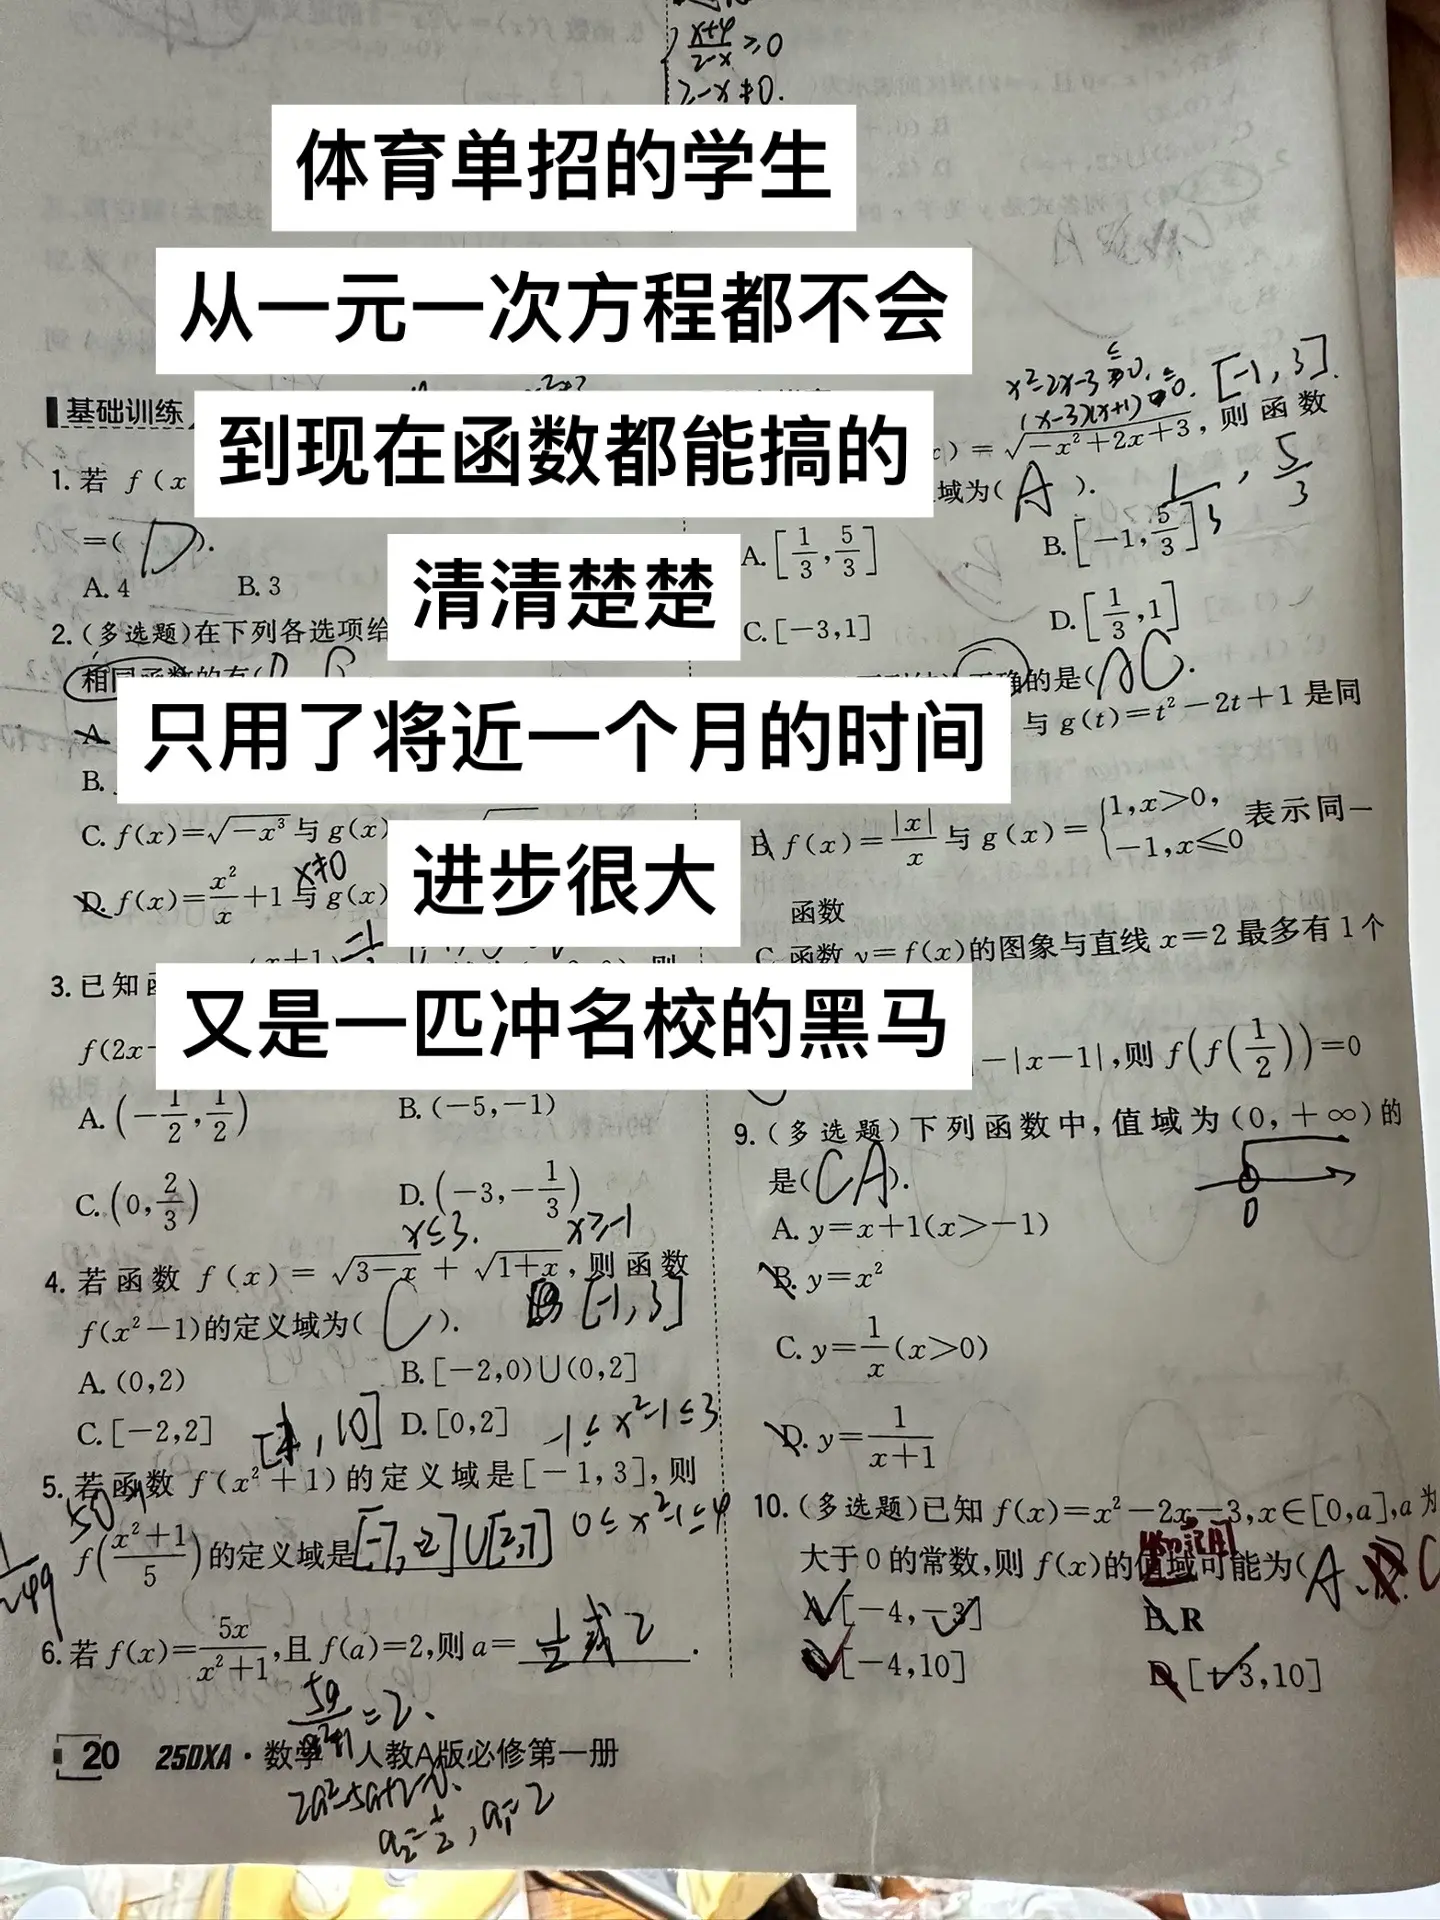 x+4/2-x ≥0
2-x≠0.
体育单招的学生
从一元一次方程都不会
到现在函数都能搞的
清清楚楚
只用了将近一个月的时间
进步很大
又是一匹冲名校的黑马
基础训练
1. 若 f(x
=( D ).
A. 4 B. 3
2. (多选题)在下列各选项给
相同函数的有(
A
B.
C. f(x)=√-x³ 与 g(x)
D. f(x)=x²/x+1与g(x)
x≠0
3. 已知函
f(2x-
A. (-1/2, 1/2) B. (-5,-1)
C. (0, 2/3) D. (-3,-1/3)
x≤3. x≥-1
4. 若函数 f(x)=√3-x+√1+x, 则函数
f(x²-1)的定义域为( C ). [-1,3]
A. (0,2) B. [-2,0)∪(0,2]
C. [-2,2] D. [0,2]
,10] -1≤x²-1≤3
5. 若函数 f(x²+1)的定义域是[-1,3],则
f(x²+1/5)的定义域是[-7,-2]∪[2,7] 0≤x²-1≤4
6. 若 f(x)=5x/x²+1,且 f(a)=2,则 a=1/2或2.
5a/a²+1=2.
2a²-5a+2=0.
a₂=1/2, a₁=2
20 25DXA·数学 人教A版必修第一册
x²-2x-3≤0. [-1,3].
(x-3)(x+1)≤0.
)=√-x²+2x+3, 则函数
域为( A ). 1/3, 5/3
A. [1/3, 5/3] B. [-1, 5/3]
C. [-3,1] D. [1/3,1]
确的是( AC .
与 g(t)=t²-2t+1 是同
B. f(x)=|x|/x 与 g(x)={1,x>0, -1,x≤0 表示同一
函数
C. 函数 y=f(x)的图象与直线 x=2 最多有 1 个
-|x-1|,则 f(f(1/2))=0
9. (多选题)下列函数中,值域为(0,+∞)的
是( CA ).
0
A. y=x+1(x>-1)
B. y=x²
C. y=1/x(x>0)
D. y=1/x+1
10. (多选题)已知 f(x)=x²-2x-3,x∈[0,a],a 为
大于 0 的常数,则 f(x)的值域可能为( A、 C
A. [-4,-3] B. R
C. [-4,10] D. [-3,10]